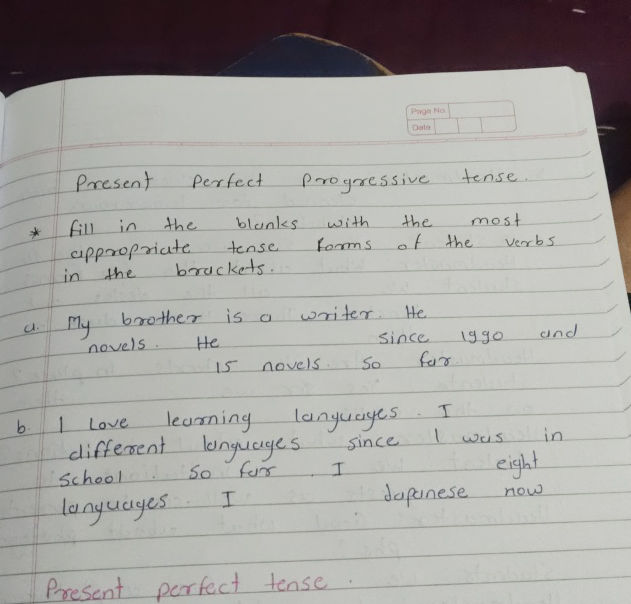 Page No
Date
Present Perfect Progressive tense.
* fill in the blanks with the most
appropriate tense forms of the verbs
in the brackets.
a. My brother is a writer. He
novels. He since 1990 and
15 novels. So far
b. I Love learning languages. I
different languages since I was in
School. So far. I eight
languages. I Japanese now
Present perfect tense.